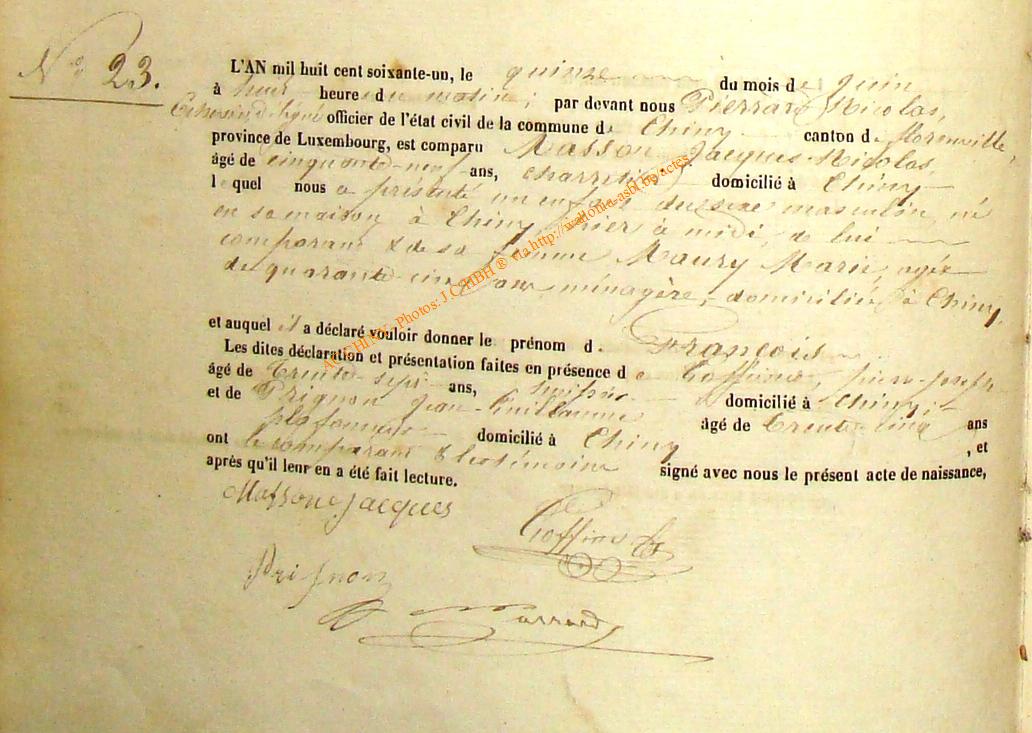 N° 23.
L'AN mil huit cent soixante-un, le quinze du mois de Juin
à huit heure du matin; par devant nous Pierrard Nicolas,
Echevin délégué officier de l'état civil de la commune de Chiny canton d
province de Luxembourg, est comparu Masson Jacques-Nicolas,
âgé de cinquante-neuf ans, charretier, domicilié à Chiny
lequel nous a présenté un enfant du sexe masculin, né
en sa maison à Chiny hier à midi, de lui
comparant & de sa femme Maury Marie, agée
de quarante cinq ans ménagère, domiciliée à Chiny,
et auquel il a déclaré vouloir donner le prénom d. François
Les dites déclaration et présentation faites en présence de Goffinet, pierre-joseph
âgé de Trente-sept ans, domicilié à Chiny;
et de Prignon Jean-Guillaume âgé de Trente-cinq ans
plafonneur domicilié à Chiny, et
ont le comparant & les témoins signé avec nous le présent acte de naissance,
après qu'il leur en a été fait lecture.
Massone Jacques
Goffinet
Prignon
Pierrard
Photos: J.C. MBH ® via http://wallonia-asbl.be/actes